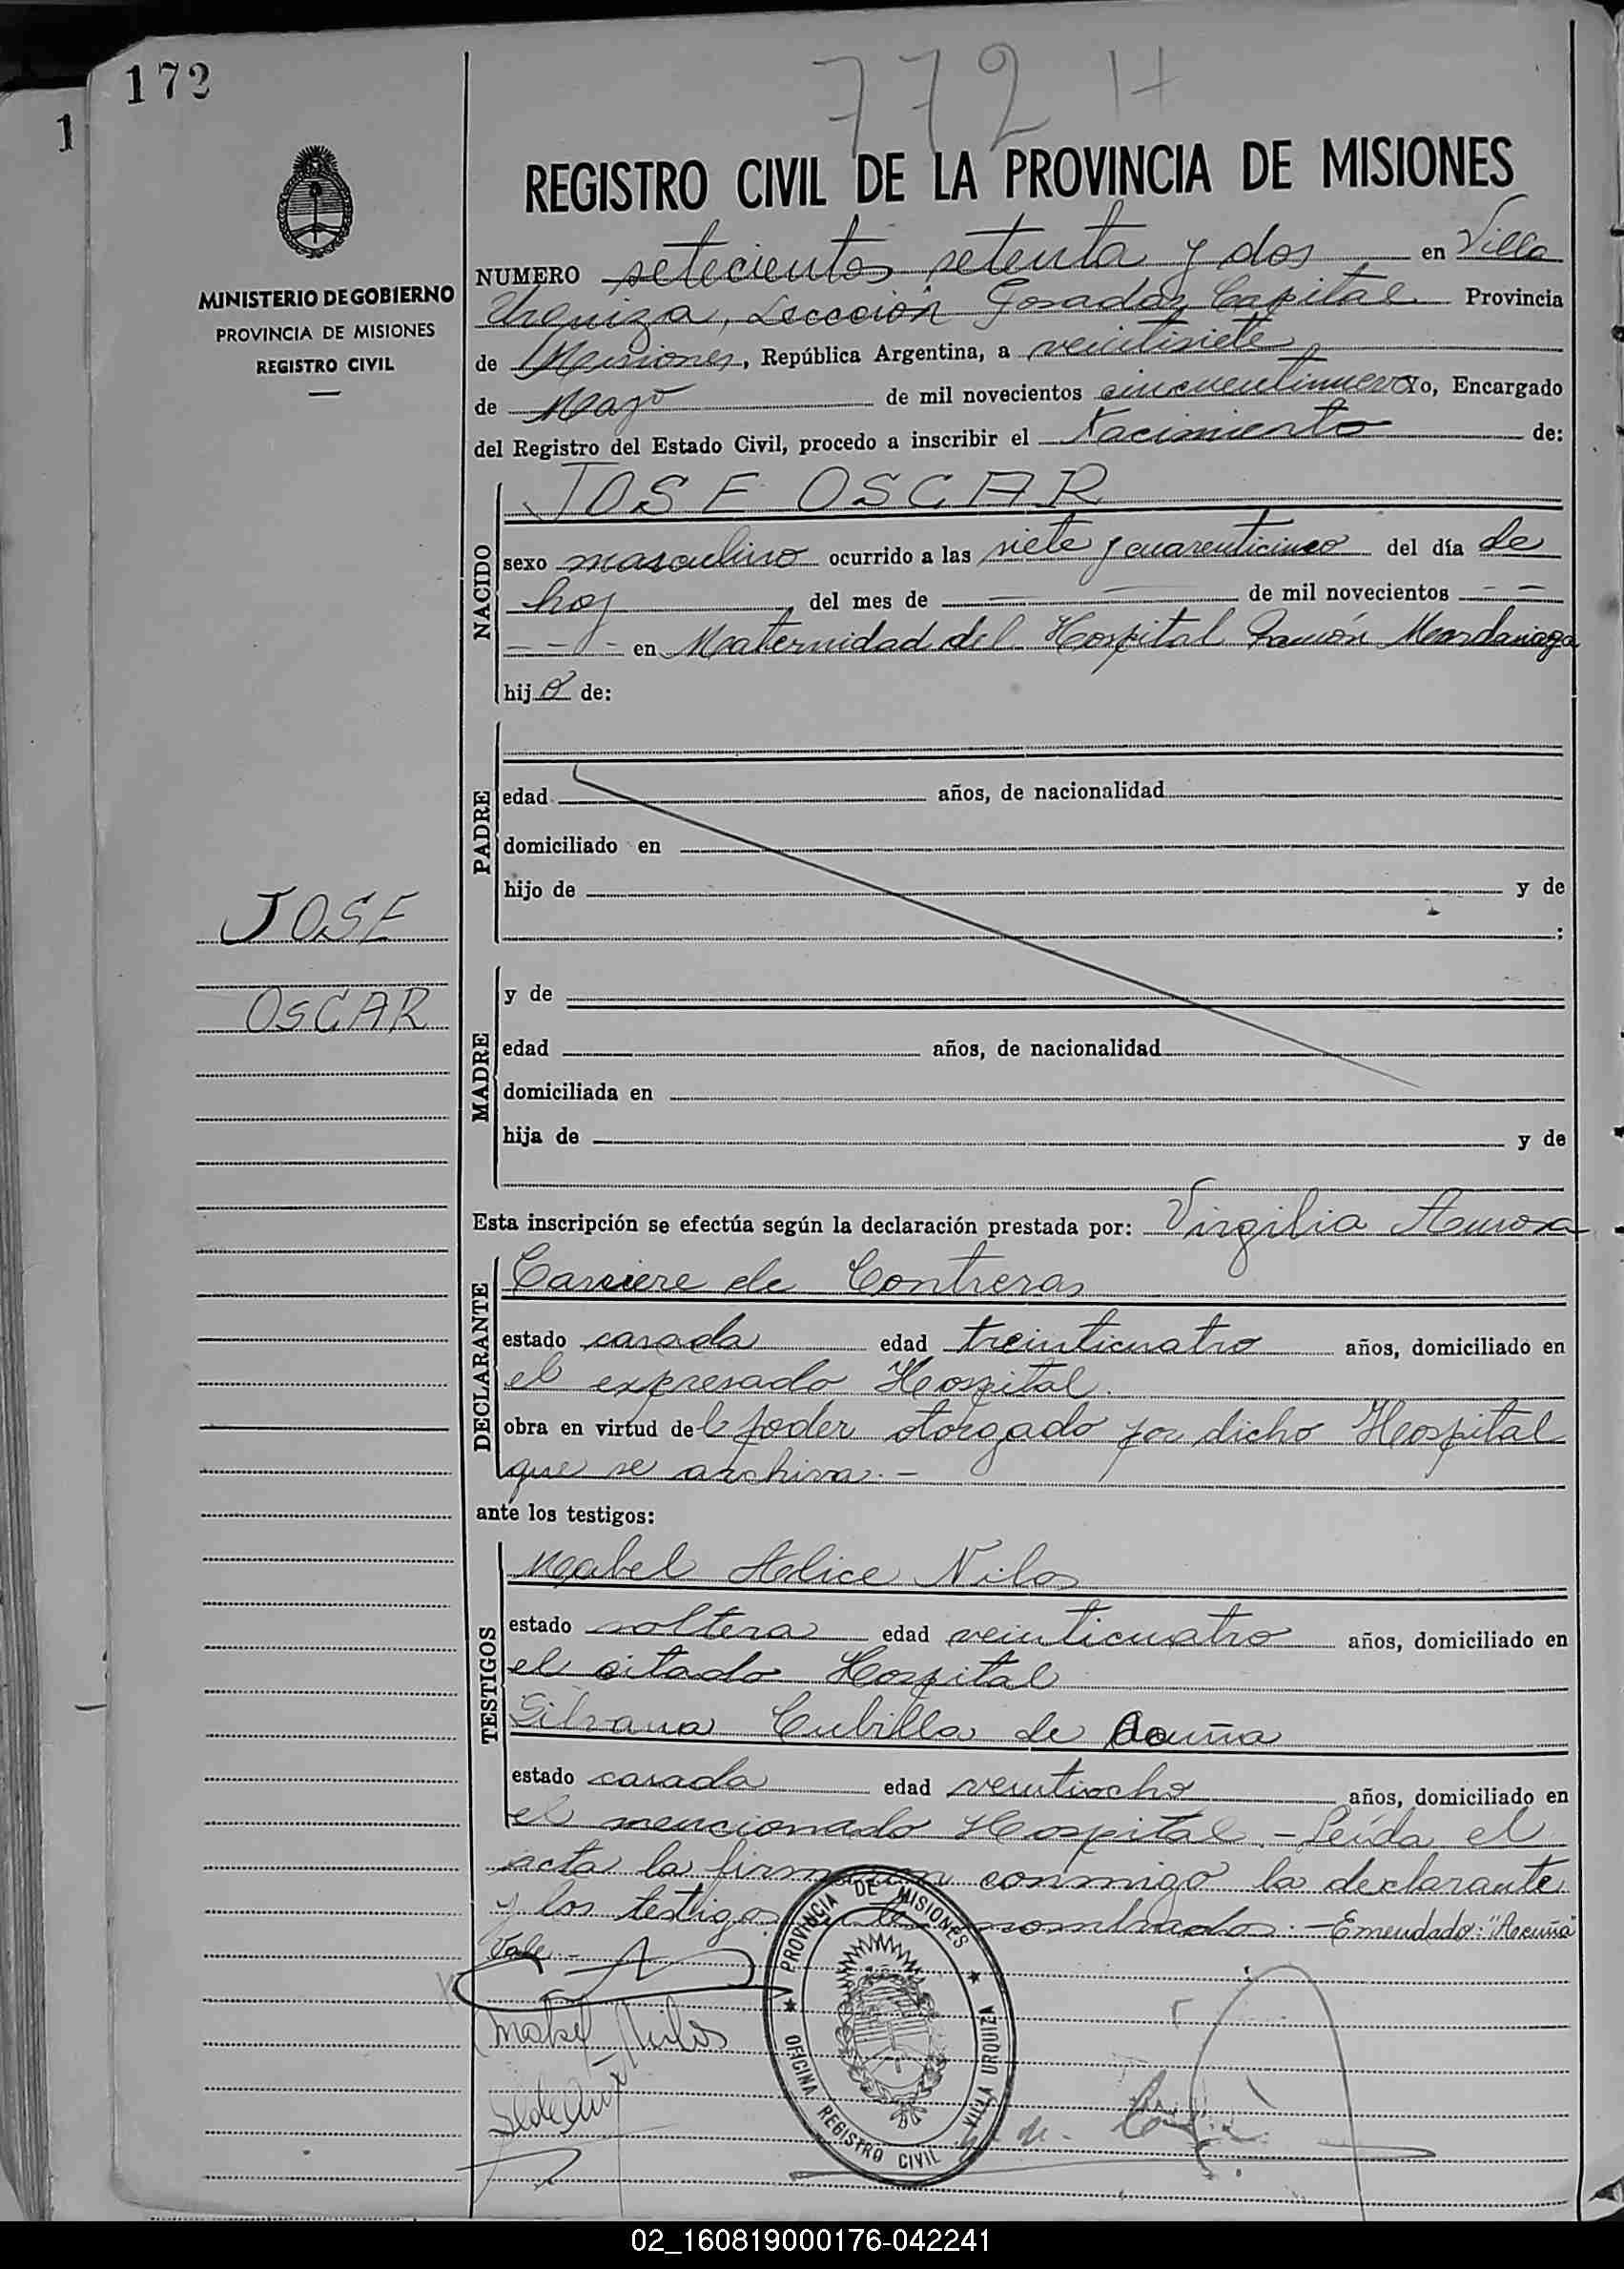 172
1
772 H
MINISTERIO DE GOBIERNO
PROVINCIA DE MISIONES
REGISTRO CIVIL
REGISTRO CIVIL DE LA PROVINCIA DE MISIONES
NUMERO setecientos setenta y dos en Villa
Urquiza, Sección Posadas, Capital Provincia
de Misiones, República Argentina, a veintisiete
de Mayo de mil novecientos cincuentinueve Yo, Encargado
del Registro del Estado Civil, procedo a inscribir el Nacimiento de:
NACIDO
JOSE OSCAR
sexo masculino ocurrido a las siete y cuarenticinco del día de
hoy del mes de — — de mil novecientos — —
— — - en Maternidad del Hospital Ramón Mardariaga
hijo de:
PADRE
edad años, de nacionalidad
domiciliado en
hijo de y de
;
JOSE
OSCAR
MADRE
y de
edad años, de nacionalidad
domiciliada en
hija de y de
Esta inscripción se efectúa según la declaración prestada por: Virgilia
DECLARANTE
de Contreras
estado casada edad treinticuatro años, domiciliado en
el expresado Hospital.
obra en virtud del poder otorgado por dicho Hospital
que se archiva.-
ante los testigos:
TESTIGOS
Mabel Alice Nilos
estado soltera edad veinticuatro años, domiciliado en
el citado Hospital
Silvana Cubilla de Acuña
estado casada edad veintiocho años, domiciliado en
el mencionado Hospital.- Leída el
acta la firman conmigo la declarante
y los testigos nombrados.- Emendado: "Acuña"
Vale.-
Mabel Nilos
PROVINCIA DE MISIONES
OFICINA REGISTRO CIVIL VILLA URQUIZA
02_160819000176-042241